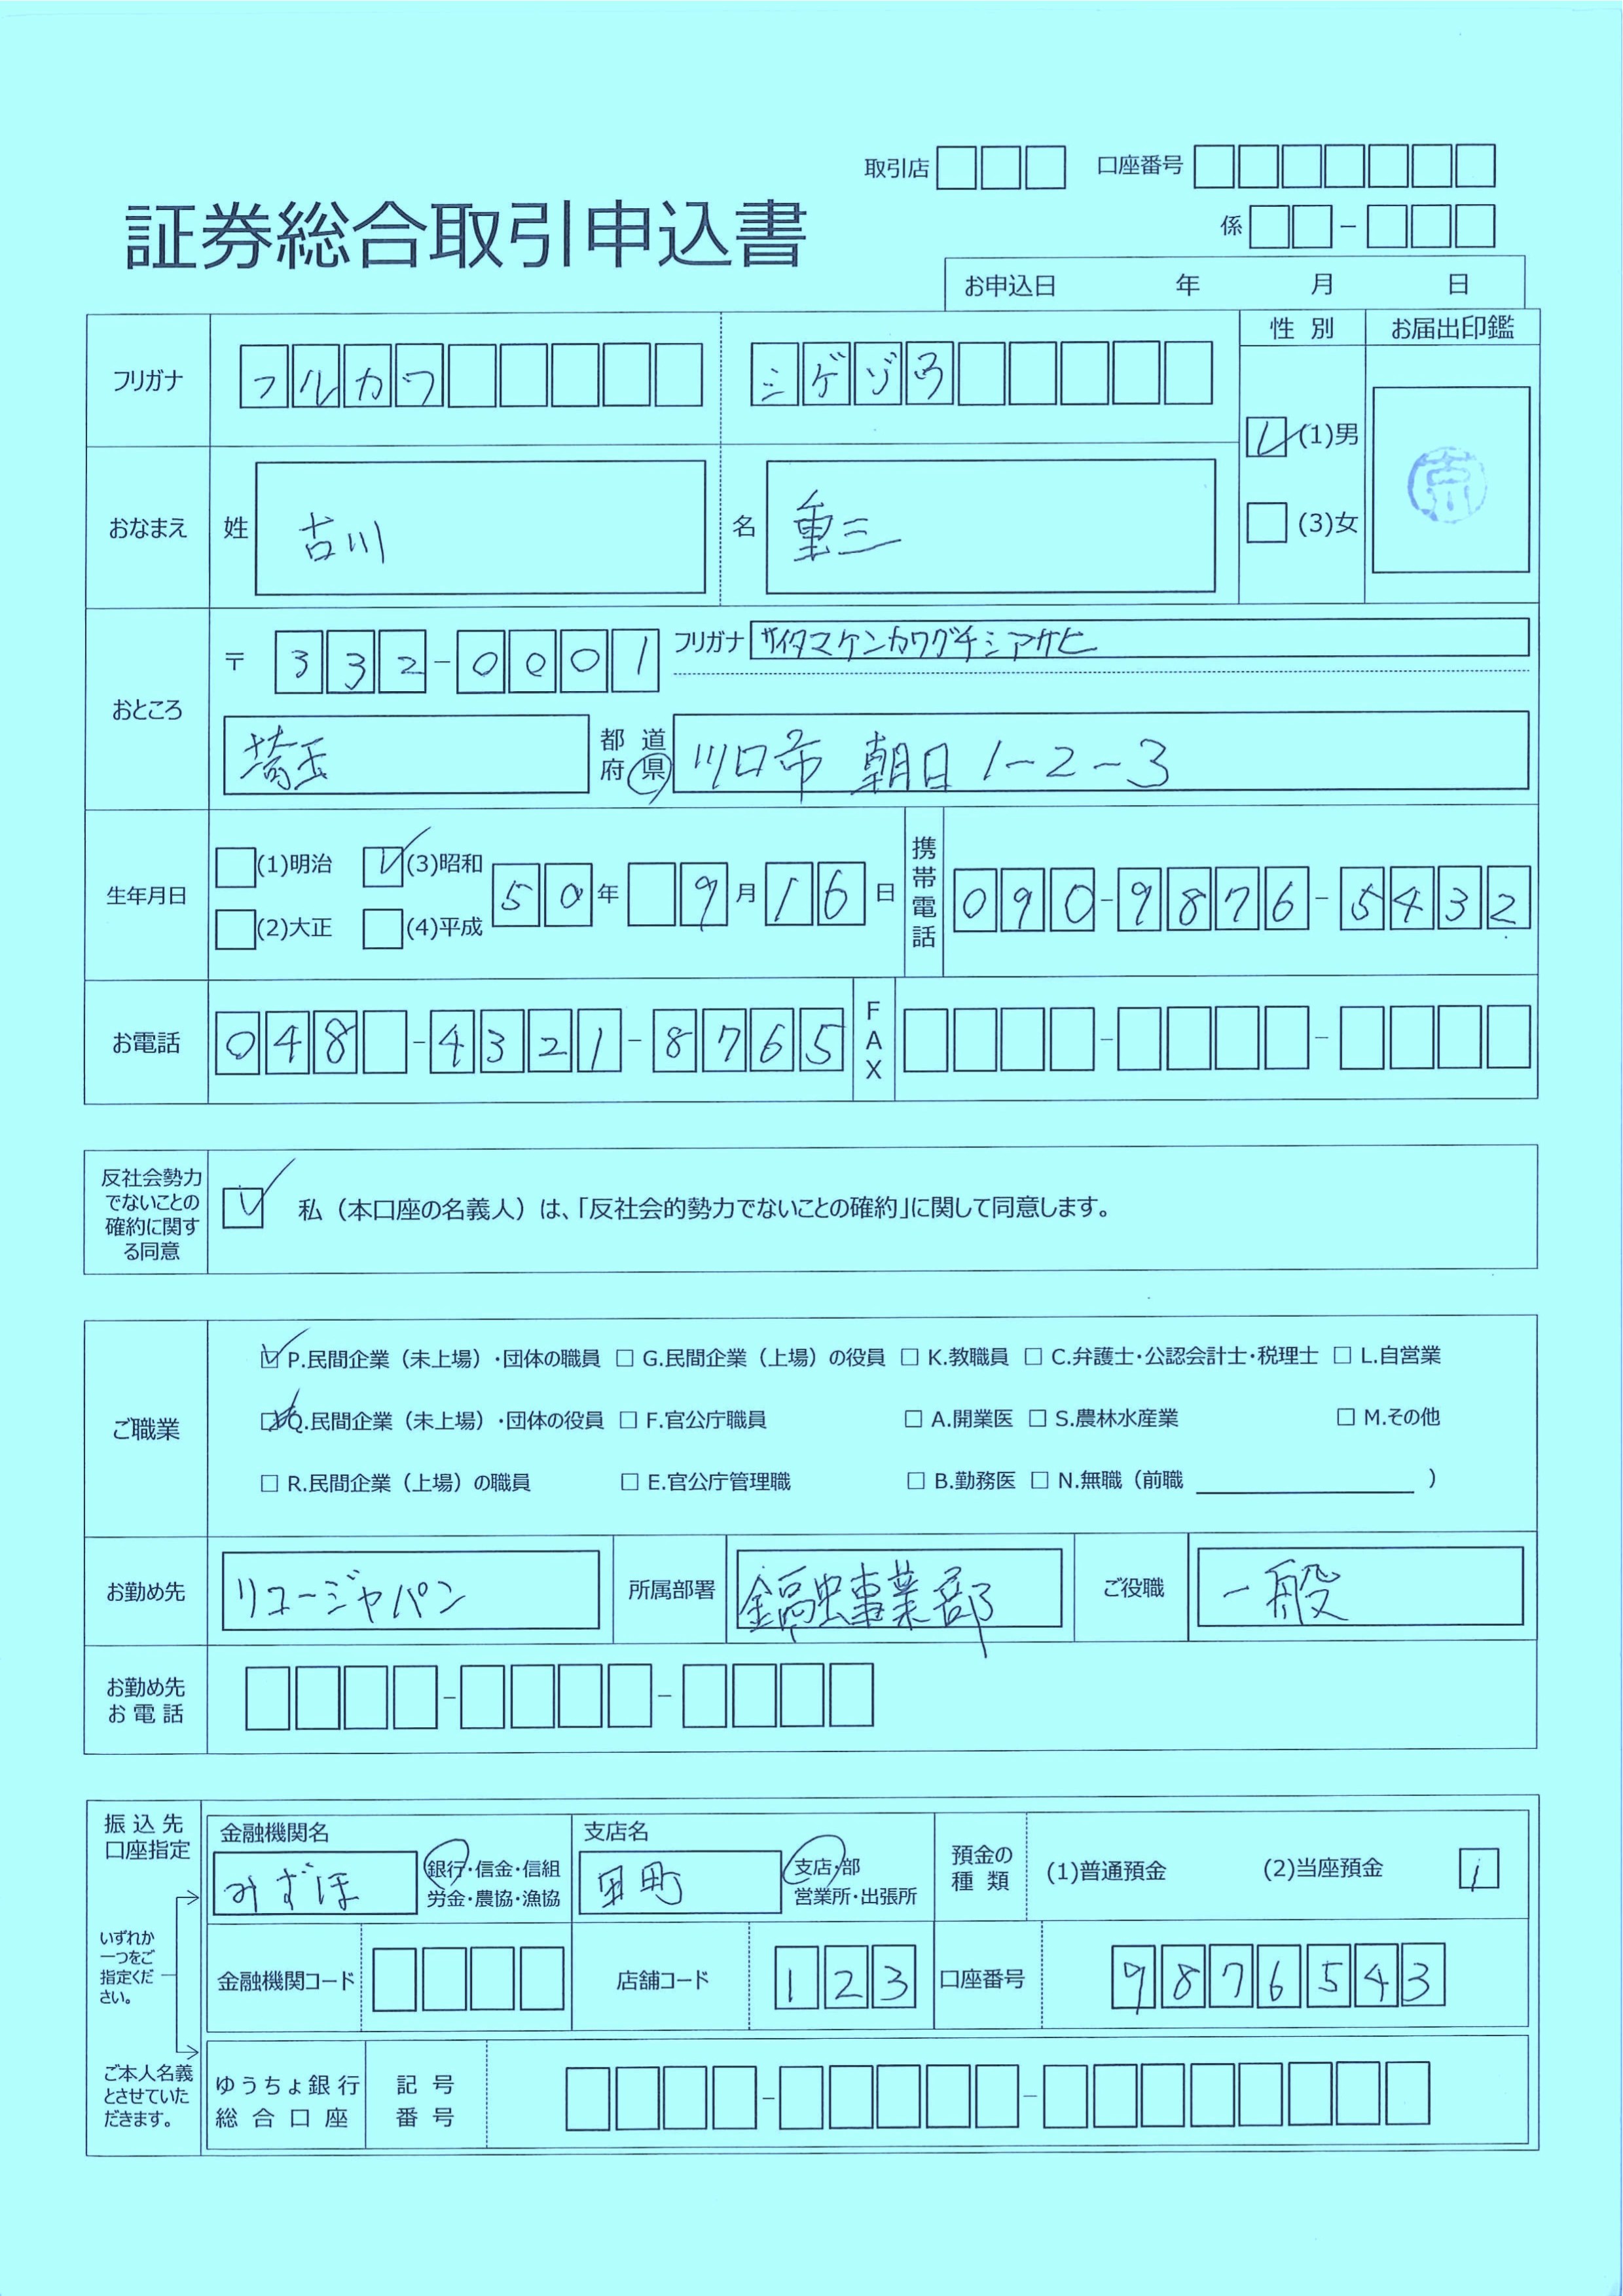 取引店 口座番号
証券総合取引申込書
係 －
お申込日 年 月 日
フリガナ フルカワ シゲゾウ 性別 お届出印鑑
おなまえ 姓 古川 名 重三 (1)男
(3)女
京
おところ 〒 332-0001 フリガナ サイタマケンカワグチシアサヒ
埼玉 都道府県 川口市 朝日 1-2-3
生年月日 (1)明治 (3)昭和 50年 9月16日 携帯電話 090-9876-5432
(2)大正 (4)平成
お電話 048-4321-8765 FAX － －
反社会勢力でないことの確約に関する同意 私（本口座の名義人）は、「反社会的勢力でないことの確約」に関して同意します。
ご職業 P.民間企業（未上場）・団体の職員 G.民間企業（上場）の役員 K.教職員 C.弁護士・公認会計士・税理士 L.自営業
Q.民間企業（未上場）・団体の役員 F.官公庁職員 A.開業医 S.農林水産業 M.その他
R.民間企業（上場）の職員 E.官公庁管理職 B.勤務医 N.無職（前職 ）
お勤め先 リコージャパン 所属部署 金融事業部 ご役職 一般
お勤め先お電話 － －
振込先口座指定 金融機関名 支店名
みずほ 銀行・信金・信組 労金・農協・漁協 町 支店・部 営業所・出張所 預金の種類 (1)普通預金 (2)当座預金 1
いずれか一つをご指定ください。 金融機関コード 店舗コード 123 口座番号 9876543
ご本人名義とさせていただきます。 ゆうちょ銀行総合口座 記号番号 － －